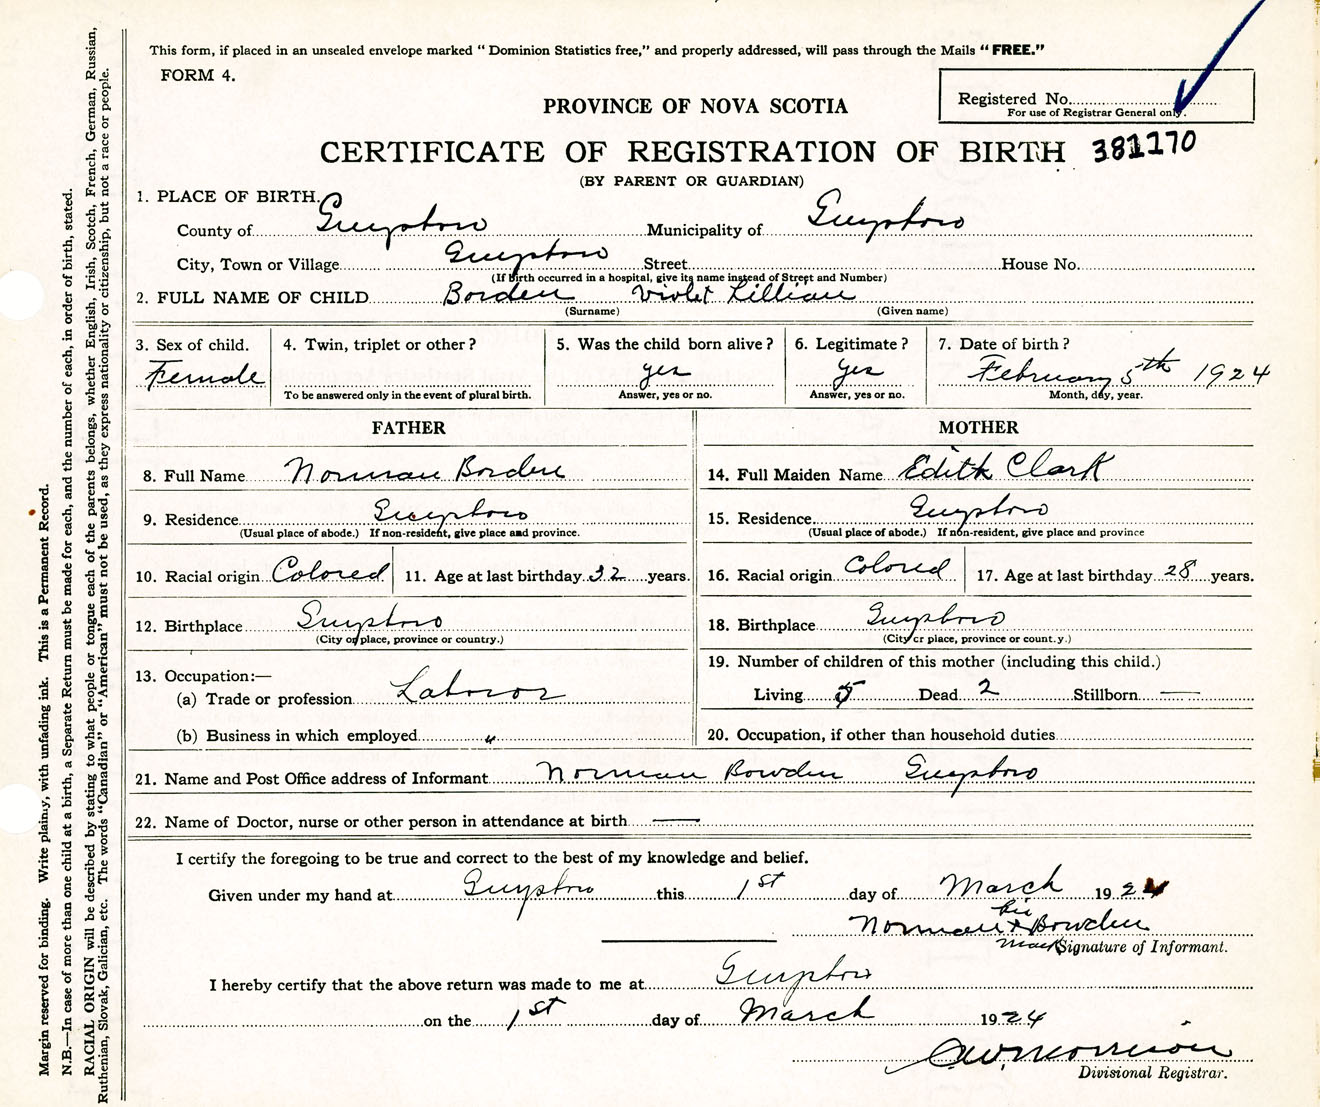 This form, if placed in an unsealed envelope marked "Dominion Statistics free," and properly addressed, will pass through the Mails "FREE."
FORM 4.
Registered No.
For use of Registrar General only.
PROVINCE OF NOVA SCOTIA
CERTIFICATE OF REGISTRATION OF BIRTH 381170
(BY PARENT OR GUARDIAN)
1. PLACE OF BIRTH.
County of Guysboro Municipality of Guysboro
City, Town or Village Guysboro Street House No.
(If Birth occurred in a hospital, give its name instead of Street and Number)
2. FULL NAME OF CHILD Borden Violet Lillian
(Surname) (Given name)
3. Sex of child. 4. Twin, triplet or other? 5. Was the child born alive? 6. Legitimate? 7. Date of birth?
Female yes yes February 5th 1924
To be answered only in the event of plural birth. Answer, yes or no. Answer, yes or no. Month, day, year.
FATHER
8. Full Name Norman Borden
9. Residence Guysboro
(Usual place of abode.) If non-resident, give place and province.
10. Racial origin Colored 11. Age at last birthday 32 years.
12. Birthplace Guysboro
(City or place, province or country.)
13. Occupation:—
(a) Trade or profession Laboror
(b) Business in which employed "
MOTHER
14. Full Maiden Name Edith Clark
15. Residence Guysboro
(Usual place of abode.) If non-resident, give place and province
16. Racial origin Colored 17. Age at last birthday 28 years.
18. Birthplace Guysboro
(City or place, province or count.y.)
19. Number of children of this mother (including this child.)
Living 5 Dead 2 Stillborn —
20. Occupation, if other than household duties
21. Name and Post Office address of Informant Norman Bowden Guysboro
22. Name of Doctor, nurse or other person in attendance at birth —
I certify the foregoing to be true and correct to the best of my knowledge and belief.
Given under my hand at Guysboro this 1st day of March 1924
his
Norman x Bowden
mark Signature of Informant.
I hereby certify that the above return was made to me at Guysboro
on the 1st day of March 1924
C.W. Morrison
Divisional Registrar.
Margin reserved for binding. Write plainly, with unfading ink. This is a Permanent Record.
N.B.—In case of more than one child at a birth, a Separate Return must be made for each, and the number of each, in order of birth, stated.
RACIAL ORIGIN will be described by stating to what people or tongue each of the parents belongs, whether English, Irish, Scotch, French, German, Russian,
Ruthenian, Slovak, Galician, etc. The words "Canadian" or "American" must not be used, as they express nationality or citizenship, but not a race or people.